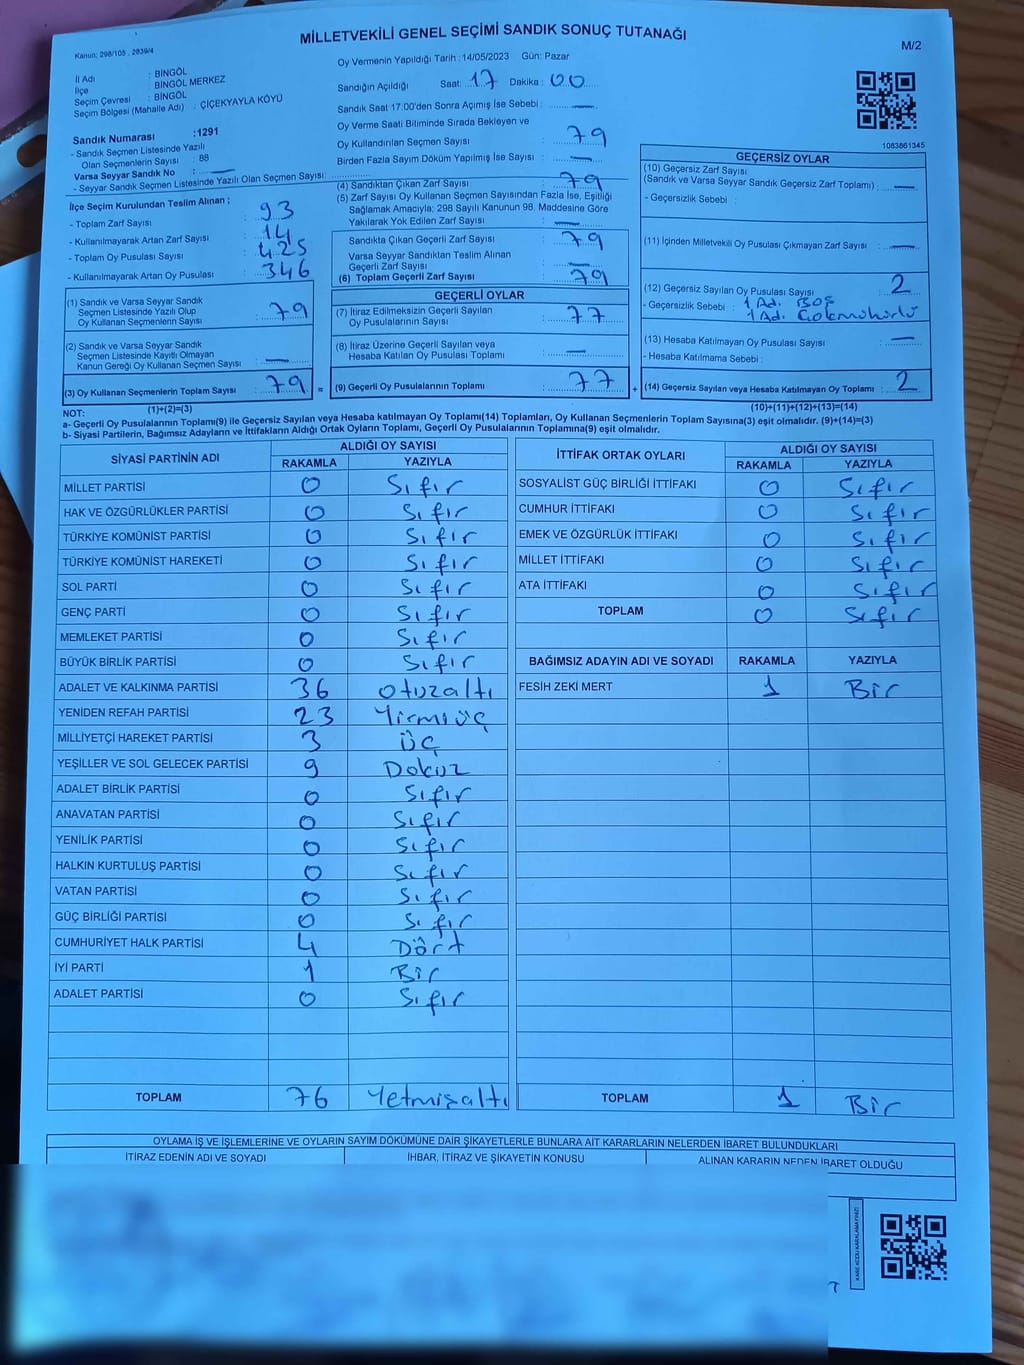 MİLLETVEKİLİ GENEL SEÇİMİ SANDIK SONUÇ TUTANAĞI
M/2
Kanun: 298/105 , 2839/4
İl Adı : BİNGÖL
İlçe : BİNGÖL MERKEZ
Seçim Çevresi : BİNGÖL
Seçim Bölgesi (Mahalle Adı) : ÇİÇEKYAYLA KÖYÜ
Sandık Numarası :1291
- Sandık Seçmen Listesinde Yazılı
Olan Seçmenlerin Sayısı : 88
Varsa Seyyar Sandık No —
- Seyyar Sandık Seçmen Listesinde Yazılı Olan Seçmen Sayısı:
İlçe Seçim Kurulundan Teslim Alınan ;
- Toplam Zarf Sayısı : 93
- Kullanılmayarak Artan Zarf Sayısı : 14
- Toplam Oy Pusulası Sayısı : 425
- Kullanılmayarak Artan Oy Pusulası : 346
(1) Sandık ve Varsa Seyyar Sandık
Seçmen Listesinde Yazılı Olup
Oy Kullanan Seçmenlerin Sayısı : 79
(2) Sandık ve Varsa Seyyar Sandık
Seçmen Listesinde Kayıtlı Olmayan
Kanun Gereği Oy Kullanan Seçmen Sayısı : —
(3) Oy Kullanan Seçmenlerin Toplam Sayısı : 79 =
(1)+(2)=(3)
Oy Vermenin Yapıldığı Tarih : 14/05/2023 Gün: Pazar
Sandığın Açıldığı Saat: 17 Dakika : 00
Sandık Saat 17:00'den Sonra Açımış İse Sebebi : —
Oy Verme Saati Bitiminde Sırada Bekleyen ve
Oy Kullandırılan Seçmen Sayısı : 79
Birden Fazla Sayım Döküm Yapılmış İse Sayısı : —
(4) Sandıktan Çıkan Zarf Sayısı : 79
(5) Zarf Sayısı Oy Kullanan Seçmen Sayısından Fazla İse, Eşitliği
Sağlamak Amacıyla; 298 Sayılı Kanunun 98. Maddesine Göre
Yakılarak Yok Edilen Zarf Sayısı : —
Sandıkta Çıkan Geçerli Zarf Sayısı : 79
Varsa Seyyar Sandıktan Teslim Alınan
Geçerli Zarf Sayısı : —
(6) Toplam Geçerli Zarf Sayısı : 79
GEÇERLİ OYLAR
(7) İtiraz Edilmeksizin Geçerli Sayılan
Oy Pusulalarının Sayısı : 77
(8) İtiraz Üzerine Geçerli Sayılan veya
Hesaba Katılan Oy Pusulası Toplamı : —
(9) Geçerli Oy Pusulalarının Toplamı : 77 +
1083861345
GEÇERSİZ OYLAR
(10) Geçersiz Zarf Sayısı
(Sandık ve Varsa Seyyar Sandık Geçersiz Zarf Toplamı) : —
- Geçersizlik Sebebi :
(11) İçinden Milletvekili Oy Pusulası Çıkmayan Zarf Sayısı : —
(12) Geçersiz Sayılan Oy Pusulası Sayısı : 2
- Geçersizlik Sebebi : 1 Ad. Boş
1 Ad.
(13) Hesaba Katılmayan Oy Pusulası Sayısı : —
- Hesaba Katılmama Sebebi :
(14) Geçersiz Sayılan veya Hesaba Katılmayan Oy Toplamı : 2
(10)+(11)+(12)+(13)=(14)
NOT:
a- Geçerli Oy Pusulalarının Toplamı(9) ile Geçersiz Sayılan veya Hesaba katılmayan Oy Toplamı(14) Toplamları, Oy Kullanan Seçmenlerin Toplam Sayısına(3) eşit olmalıdır. (9)+(14)=(3)
b- Siyasi Partilerin, Bağımsız Adayların ve İttifakların Aldığı Ortak Oyların Toplamı, Geçerli Oy Pusulalarının Toplamına(9) eşit olmalıdır.
SİYASİ PARTİNİN ADI ALDIĞI OY SAYISI
RAKAMLA YAZIYLA
MİLLET PARTİSİ 0 Sıfır
HAK VE ÖZGÜRLÜKLER PARTİSİ 0 Sıfır
TÜRKİYE KOMÜNİST PARTİSİ 0 Sıfır
TÜRKİYE KOMÜNİST HAREKETİ 0 Sıfır
SOL PARTİ 0 Sıfır
GENÇ PARTİ 0 Sıfır
MEMLEKET PARTİSİ 0 Sıfır
BÜYÜK BİRLİK PARTİSİ 0 Sıfır
ADALET VE KALKINMA PARTİSİ 36 Otuzaltı
YENİDEN REFAH PARTİSİ 23 Yirmiüç
MİLLİYETÇİ HAREKET PARTİSİ 3 Üç
YEŞİLLER VE SOL GELECEK PARTİSİ 9 Dokuz
ADALET BİRLİK PARTİSİ 0 Sıfır
ANAVATAN PARTİSİ 0 Sıfır
YENİLİK PARTİSİ 0 Sıfır
HALKIN KURTULUŞ PARTİSİ 0 Sıfır
VATAN PARTİSİ 0 Sıfır
GÜÇ BİRLİĞİ PARTİSİ 0 Sıfır
CUMHURİYET HALK PARTİSİ 4 Dört
İYİ PARTİ 1 Bir
ADALET PARTİSİ 0 Sıfır
TOPLAM 76 Yetmişaltı
İTTİFAK ORTAK OYLARI ALDIĞI OY SAYISI
RAKAMLA YAZIYLA
SOSYALİST GÜÇ BİRLİĞİ İTTİFAKI 0 Sıfır
CUMHUR İTTİFAKI 0 Sıfır
EMEK VE ÖZGÜRLÜK İTTİFAKI 0 Sıfır
MİLLET İTTİFAKI 0 Sıfır
ATA İTTİFAKI 0 Sıfır
TOPLAM 0 Sıfır
BAĞIMSIZ ADAYIN ADI VE SOYADI RAKAMLA YAZIYLA
FESİH ZEKİ MERT 1 Bir
TOPLAM 1 Bir
OYLAMA İŞ VE İŞLEMLERİNE VE OYLARIN SAYIM DÖKÜMÜNE DAİR ŞİKAYETLERLE BUNLARA AİT KARARLARIN NELERDEN İBARET BULUNDUKLARI
İTİRAZ EDENİN ADI VE SOYADI İHBAR, İTİRAZ VE ŞİKAYETİN KONUSU ALINAN KARARIN NEDEN İBARET OLDUĞU
KARE KODU KARALAMAYINIZ!